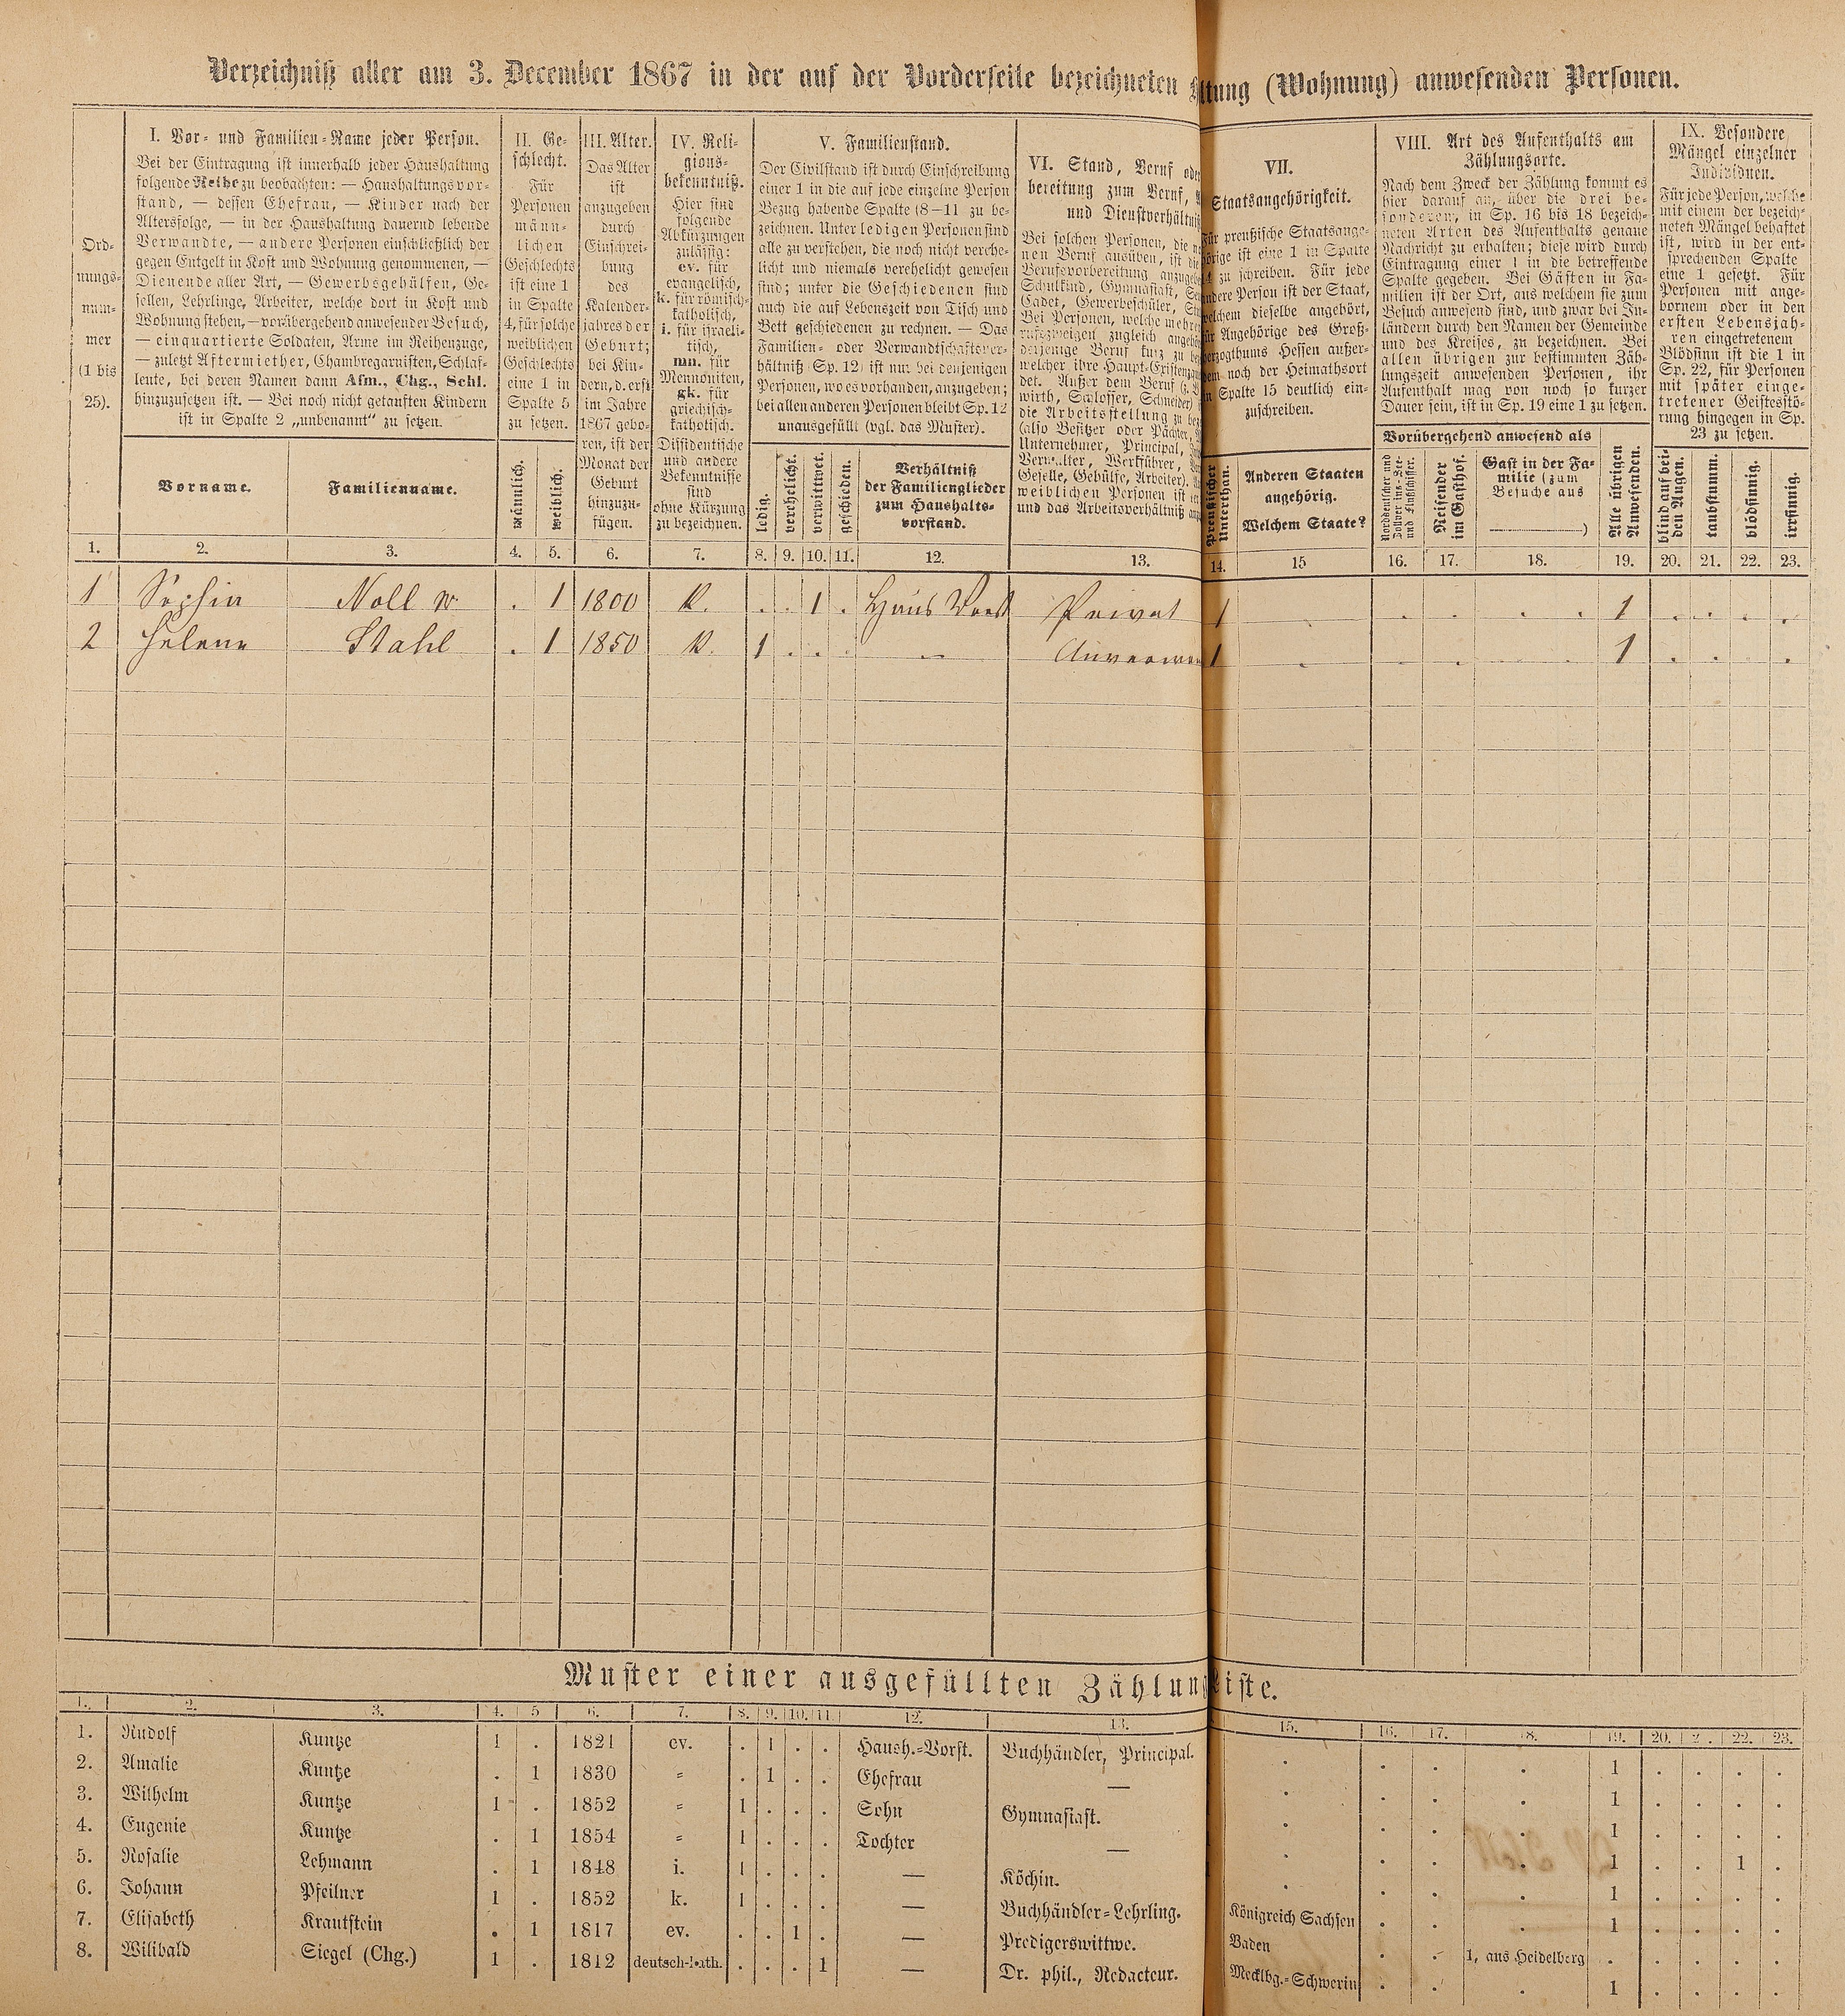 Verzeichniß aller am 3. December 1867 in der auf der Vorderseite bezeichneten ltung (Wohnung) anwesenden Personen.
Ord-
nungs-
num-
mer
(1 bis
25).
I. Vor- und Familien-Name jeder Person.
Bei der Eintragung ist innerhalb jeder Haushaltung
folgende Reihe zu beobachten: — Haushaltungsvor-
stand, — dessen Ehefrau, — Kinder nach der
Altersfolge, — in der Haushaltung dauernd lebende
Verwandte, — andere Personen einschließlich der
gegen Entgelt in Kost und Wohnung genommenen, —
Dienende aller Art, — Gewerbsgehülfen, Ge-
sellen, Lehrlinge, Arbeiter, welche dort in Kost und
Wohnung stehen, — vorübergehend anwesender Besuch,
— einquartierte Soldaten, Arme im Reihenzuge,
— zuletzt Aftermiether, Chambregarnisten, Schlaf-
leute, bei deren Namen dann Afm., Chg., Schl.
hinzuzusetzen ist. — Bei noch nicht getauften Kindern
ist in Spalte 2 „unbenannt“ zu setzen.
Vorname.
Familienname.
II. Ge-
schlecht.
Für
Personen
männ-
lichen
Geschlechts
ist eine 1
in Spalte
4, für solche
weiblichen
Geschlechts
eine 1 in
Spalte 5
zu setzen.
männlich.
weiblich.
III. Alter.
Das Alter
ist
anzugeben
durch
Einschrei-
bung
des
Kalender-
jahres der
Geburt;
bei Kin-
dern, d. erst
im Jahre
1867 gebo-
ren, ist der
Monat der
Geburt
hinzuzu-
fügen.
IV. Reli-
gions-
bekenntniß.
Hier sind
folgende
Abkürzungen
zulässig:
ev. für
evangelisch,
k. für römisch-
katholisch,
i. für israeli-
tisch,
mn. für
Mennoniten,
gk. für
griechisch-
katholisch.
Dissidentische
und andere
Bekenntnisse
sind
ohne Kürzung
zu bezeichnen.
V. Familienstand.
Der Civilstand ist durch Einschreibung
einer 1 in die auf jede einzelne Person
Bezug habende Spalte (8–11 zu be-
zeichnen. Unter ledigen Personen sind
alle zu verstehen, die noch nicht verehe-
licht und niemals verehelicht gewesen
sind; unter die Geschiedenen sind
auch die auf Lebenszeit von Tisch und
Bett geschiedenen zu rechnen. — Das
Familien- oder Verwandtschaftsver-
hältniß (Sp. 12) ist nur bei denjenigen
Personen, wo es vorhanden, anzugeben;
bei allen anderen Personen bleibt Sp. 12
unausgefüllt (vgl. das Muster).
ledig.
verehelicht.
verwittwet.
geschieden.
Verhältniß
der Familienglieder
zum Haushalts-
vorstand.
VI. Stand, Beruf oder
bereitung zum Beruf,
und Dienstverhältniß
Bei solchen Personen, die
nen Beruf ausüben, ist die
Berufsvorbereitung anzugeben
Schulkind, Gymnasiast,
Cadet, Gewerbeschüler,
Bei Personen, welche mehreren
rufszweigen zugleich angehören
derjenige Beruf kurz zu
welcher ihre Haupt-Existenz
det. Außer dem Beruf
wirth, Schlosser, Schneider)
die Arbeitsstellung zu
(also Besitzer oder Pächter,
Unternehmer, Principal,
Verwalter, Werkführer,
Geselle, Gehülfe, Arbeiter).
weiblichen Personen ist
und das Arbeitsverhältniß
VII.
Staatsangehörigkeit.
Für preußische Staatsange-
hörige ist eine 1 in Spalte
14 zu schreiben. Für jede
andere Person ist der Staat,
welchem dieselbe angehört,
für Angehörige des Groß-
herzogthums Hessen außer-
dem noch der Heimathsort
in Spalte 15 deutlich ein-
zuschreiben.
Preußischer
Unterthan.
Anderen Staaten
angehörig.
Welchem Staate?
VIII. Art des Aufenthalts am
Zählungsorte.
Nach dem Zweck der Zählung kommt es
hier darauf an, über die drei be-
sonderen, in Sp. 16 bis 18 bezeich-
neten Arten des Aufenthalts genaue
Nachricht zu erhalten; diese wird durch
Eintragung einer 1 in die betreffende
Spalte gegeben. Bei Gästen in Fa-
milien ist der Ort, aus welchem sie zum
Besuch anwesend sind, und zwar bei In-
ländern durch den Namen der Gemeinde
und des Kreises, zu bezeichnen. Bei
allen übrigen zur bestimmten Zäh-
lungszeit anwesenden Personen, ihr
Aufenthalt mag von noch so kurzer
Dauer sein, ist in Sp. 19 eine 1 zu setzen.
Vorübergehend anwesend als
Norddeutscher und
Zollver ins-See-
und Flußschiffer.
Reisender
im Gasthof.
Gast in der Fa-
milie (zum
Besuche aus
)
Alle übrigen
Anwesenden.
IX. Besondere
Mängel einzelner
Individuen.
Für jede Person, welche
mit einem der bezeich-
neten Mängel behaftet
ist, wird in der ent-
sprechenden Spalte
eine 1 gesetzt. Für
Personen mit ange-
bornem oder in den
ersten Lebensjah-
ren eingetretenem
Blödsinn ist die 1 in
Sp. 22, für Personen
mit später einge-
tretener Geistesstö-
rung hingegen in Sp.
23 zu setzen.
blind auf bei-
den Augen.
taubstumm.
blödsinnig.
irrsinnig.
1. 2. 3. 4. 5. 6. 7. 8. 9. 10. 11. 12. 13. 14. 15 16. 17. 18. 19. 20. 21. 22. 23.
1 Sophia Noll w. . 1 1800 K. . . 1 . Haus Vorst Privat 1 . . . . . 1 . . . .
2 Helena Stahl . 1 1850 K. 1 . . — 1 . . . . 1 . . .
Muster einer ausgefüllten Zählungsliste.
1. 2. 3. 4. 5 6. 7. 8. 9. 10. 11. 12. 13. 15. 16. 17. 18. 19. 20. 2 . 22. 23.
1. Rudolf Kuntze 1 . 1821 ev. . 1 . . Haush.-Vorst. Buchhändler, Principal. . . . . 1 . . . .
2. Amalie Kuntze . 1 1830 = . 1 . . Ehefrau — . . . . 1 . . . .
3. Wilhelm Kuntze 1 . 1852 = 1 . . . Sohn Gymnasiast. . . . . 1 . . . .
4. Eugenie Kuntze . 1 1854 = 1 . . . Tochter — . . . . 1 . . 1 .
5. Rosalie Lehmann . 1 1848 i. 1 . . . — Köchin. . . . . 1 . . . .
6. Johann Pfeilner 1 . 1852 k. 1 . . . — Buchhändler-Lehrling. Königreich Sachsen . . . 1 . . . .
7. Elisabeth Krautstein . 1 1817 ev. . . 1 . — Predigerswittwe. Baden . . 1, aus Heidelberg . . . . .
8. Wilibald Siegel (Chg.) 1 . 1812 deutsch-kath. . . . 1 — Dr. phil., Redacteur. Mecklbg.-Schwerin . . . 1 . . . .